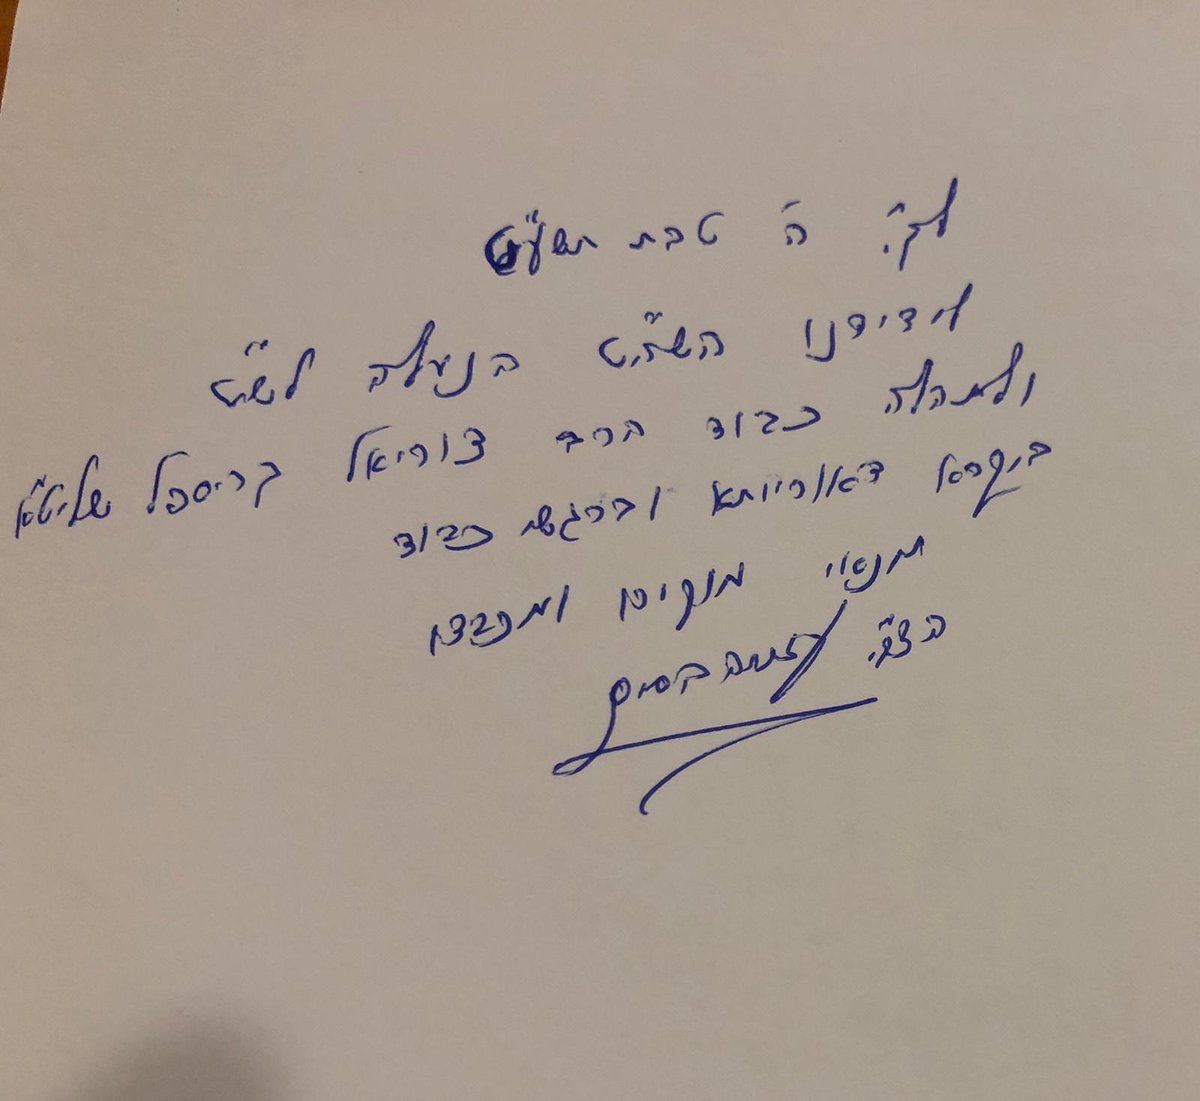 עק״. ה׳ טבת תשע״ט
לידידנו השה״ט הנעלה לש״ט
ולתהלה כבוד הרב צוריאל קריספל שליט״א
ביקרא דאורייתא וברגשי כבוד
מנאי מוקירו ומכבדו
הצב״י